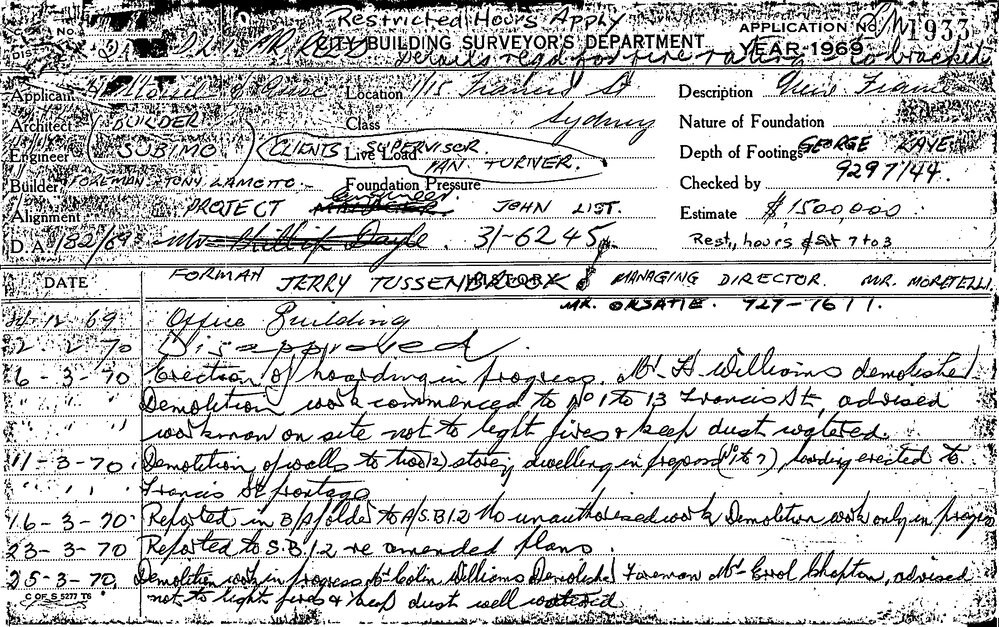 Restricted Hours Apply
No.
CITY BUILDING SURVEYOR'S DEPARTMENT
APPLICATION No. 1933
YEAR-1969
Details reqd for fire rating to bracket
Applicant
Location 1/15 Francis St
Description
Architect BUILDER
Class Sydney
Nature of Foundation
Engineer SUBIMO
CLIENTS SUPERVISOR.
Live Load IAN TURNER.
Depth of Footings GEORGE KAYE
Builder FOREMAN. TONY LAMOTTO
Foundation Pressure
Checked by 9297144.
Alignment PROJECT JOHN LIST.
Estimate $1500000.
D.A. 182/69 31-6245
Rest, hours & Sat 7 to 3
DATE
HISTORY
FORMAN JERRY TUSSENBROOK MANAGING DIRECTOR. MR. MORETELLI
MR. ORSATIE. 727-7611.
12 69 Office Building
2-70 Disapproved
6-3-70 Erection of hoarding in progress. Mr H. Williams demolisher.
" " " Demolition work commenced to No 1 to 13 Francis St, advised
workman on site not to light fires & keep dust watered.
11-3-70. Demolition of walls to two(2) storey dwelling in progress (No 1 to 7), hoarding erected to
" " " Francis St frontage
16-3-70 Reported in B/A folder to A/S.B.I.2 No unauthorised work Demolition work only in progress
23-3-70 Reported to S.B.I.2 re amended plans.
25-3-70, Demolition work in progress Mr Colin Williams Demolisher Foreman Mr Errol Shepton, advised
C OF S 5277 T6 not to light fires & keep dust well watered